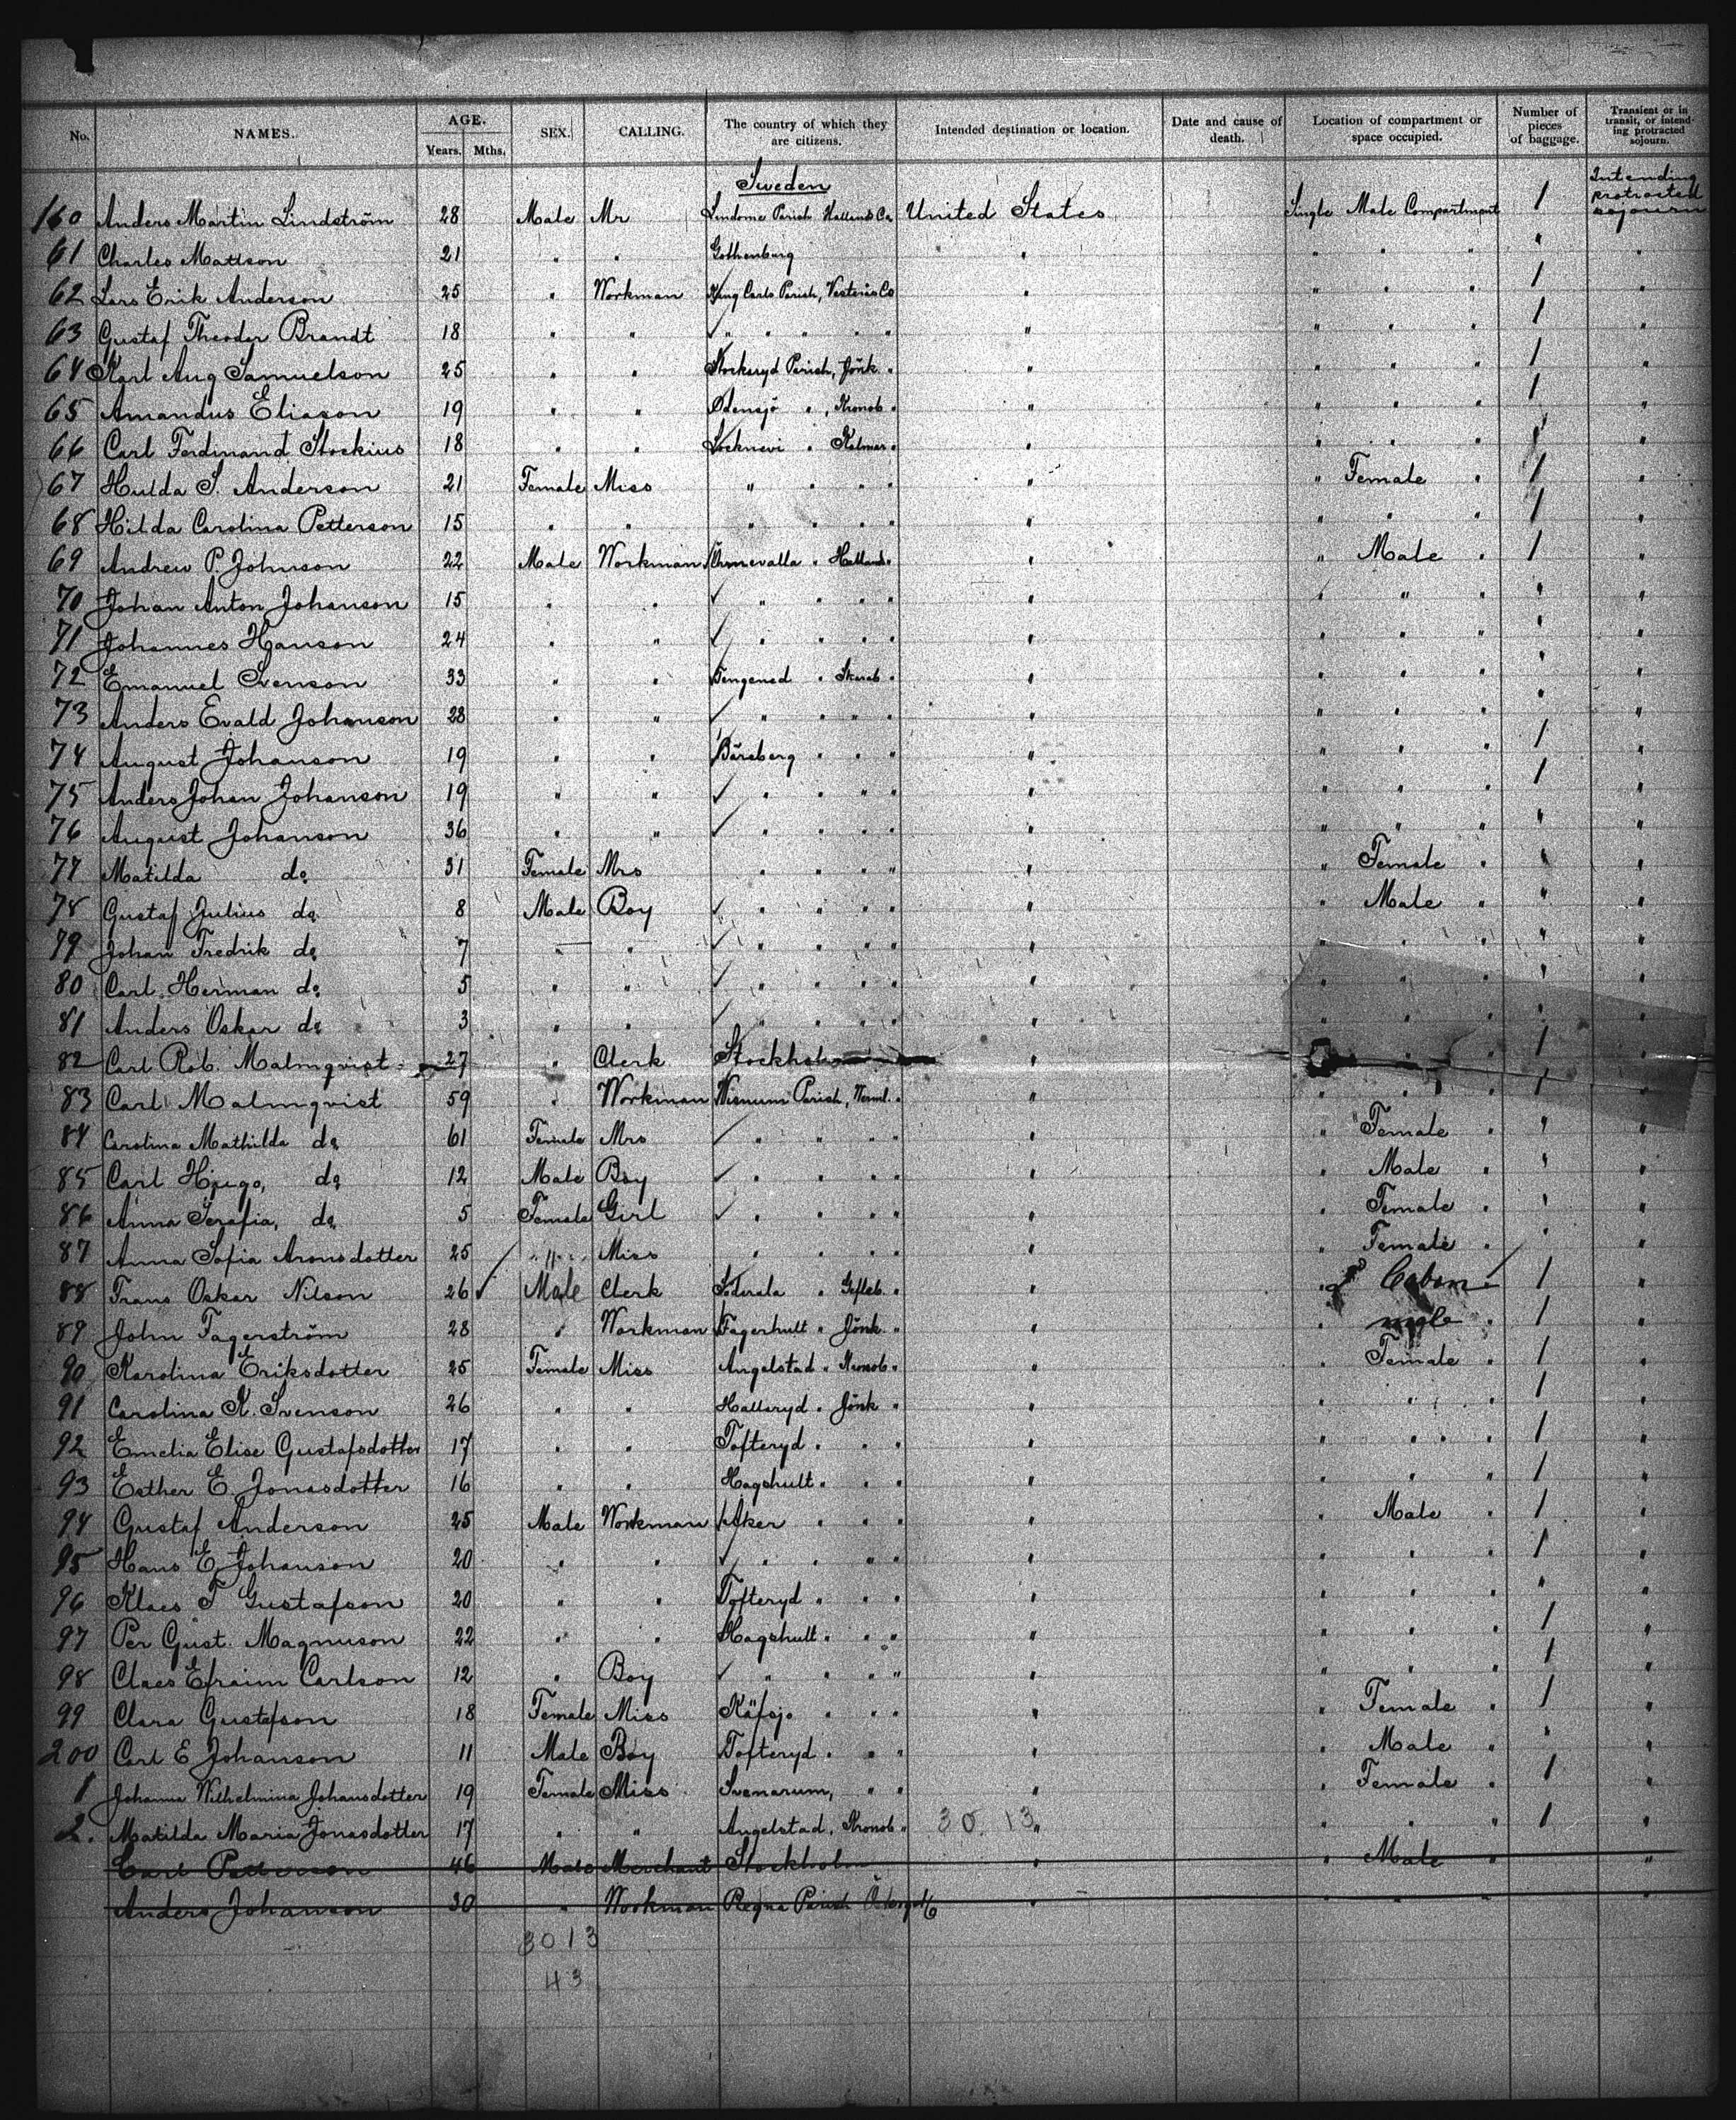 No. NAMES. AGE. Years. Mths. SEX. CALLING. The country of which they are citizens. Intended destination or location. Date and cause of death. Location of compartment or space occupied. Number of pieces of baggage. Transient or in transit, or intending protracted sojourn.
Sweden Intending protracted sojourn
160 Anders Martin Lindström 28 Male Mr Lindome Parish Hallands Co United States Single Male Compartment 1
61 Charles Mattson 21 " " Gothenburg " " " " " "
62 Lars Erik Anderson 25 " Workman Kung Carls Parish, Vesterås Co " " " " 1 "
63 Gustaf Theodor Brandt 18 " " " " " " " " " " " 1 "
64 Karl Aug Samuelson 25 " " Stocksryd Parish, Jönk. " " " " " 1 "
65 Amandus Eliason 19 " " Odensjö " , Kronob " " " " " 1 "
66 Carl Ferdinand Stockius 18 " " Locknevi " Kalmar " " " " " 1 "
67 Hulda S. Anderson 21 Female Miss " " " " " " Female " 1 "
68 Hilda Carolina Petterson 15 " " " " " " " " " " 1 "
69 Andrew P. Johnson 22 Male Workman Ömmevalla " Hallands " " " Male " 1 "
70 Johan Anton Johanson 15 " " ✓ " " " " " " " " " "
71 Johannes Hanson 24 " " ✓ " " " " " " " " " "
72 Emanuel Svenson 33 " " Tengened " Skarab " " " " " " "
73 Anders Evald Johanson 28 " " ✓ " " " " " " " " " "
74 August Johanson 19 " " Bäreberg " " " " " " " 1 "
75 Anders Johan Johanson 19 " " ✓ " " " " " " " " 1 "
76 August Johanson 36 " " ✓ " " " " " " " " " "
77 Matilda do 31 Female Mrs " " " " " " Female " " "
78 Gustaf Julius do 8 Male Boy ✓ " " " " " " Male " " "
79 Johan Fredrik do 7 " " ✓ " " " " " " " " " "
80 Carl Herman do 5 " " ✓ " " " " " " " " " "
81 Anders Oskar do 3 " " ✓ " " " " " " " " " "
82 Carl Rob. Malmqvist 27 " Clerk Stockholm " " " 1 "
83 Carl Malmqvist 59 " Workman Wisnums Parish, Verml. " " " " " 1 "
84 Carolina Mathilda do 61 Female Mrs ✓ " " " " " " Female " " "
85 Carl Hjugo, do 12 Male Boy ✓ " " " " " " Male " " "
86 Anna Serafia, do 5 Female Girl ✓ " " " " " " Female " " "
87 Anna Sofia Aronsdotter 25 " Miss " " " " " " Female " " "
88 Frans Oskar Nilson 26 ✓ Male Clerk Söderala " Gefleb. " " Cabin 1 "
89 John Fagerström 28 " Workman Fagerhult " Jönk. " " " male " 1 "
90 Karolina Eriksdotter 25 Female Miss Angelstad " Kronob " " " Female " 1 "
91 Carolina K. Svenson 26 " " Hallaryd " Jönk " " " " " 1 "
92 Emelia Elise Gustafsdotter 17 " " Tofteryd " " " " " " " 1 "
93 Esther E. Jonasdotter 16 " " Hagshult " " " " " " " 1 "
94 Gustaf Anderson 25 Male Workman Åker " " " " " Male " 1 "
95 Hans E Johanson 20 " " ✓ " " " " " " " " 1 "
96 Klaes F Gustafson 20 " " Tofteryd " " " " " " " " "
97 Per Gust. Magnuson 22 " " Hagshult " " " " " " " 1 "
98 Claes Efraim Carlson 12 " Boy ✓ " " " " " " " " 1 "
99 Clara Gustafson 18 Female Miss Käfsjö " " " " " Female " 1 "
200 Carl E Johanson 11 Male Boy Tofteryd " " " " " Male " " "
1 Johanna Wilhelmina Johansdotter 19 Female Miss Svenarum, " " " " Female " 1 "
2. Matilda Maria Jonasdotter 17 " " Angelstad, Kronob " 30. 13 " " " " 1 "
Carl Petterson 46 Male Merchant Stockholm " " Male " "
Anders Johanson 30 " Workman Regna Parish " " " " "
30 13
43